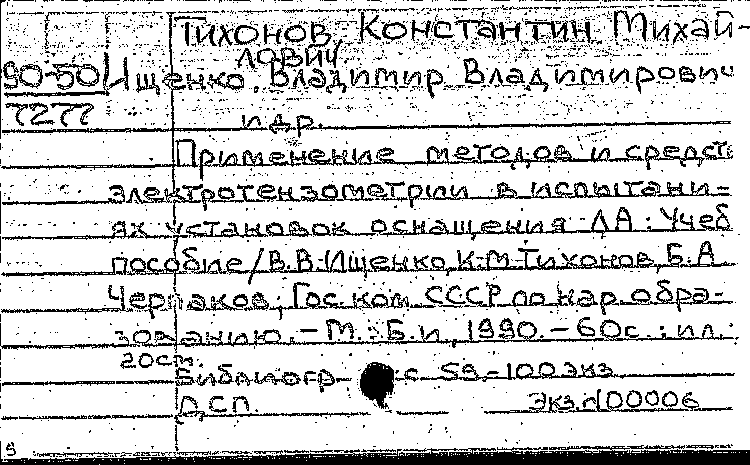 Тихонов Константин Михай-
лович
90-50 Ищенко, Владимир Владимирович
7277 и др.
Применение методов и средств
электротензометрии в испытани-
ях установок оснащения ЛА: Учеб
пособие/В.В.Ищенко, К.М.Тихонов, Б.А.
Черпаков; Гос. ком. СССР по нар. обра-
зованию. - М.: Б.и., 1990. - 60с.: ил.;
20см.
Библиогр. с 59.-100экз
ДСП. Экз.N00006